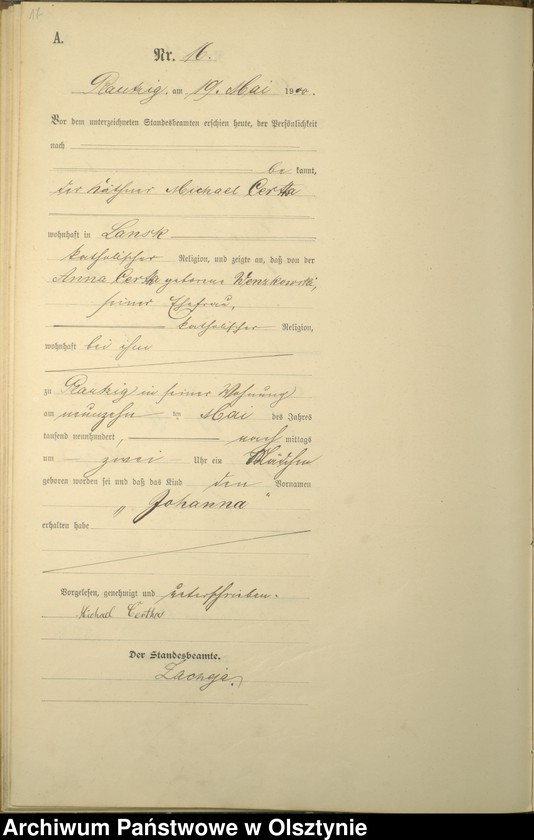 17
A.
Nr. 16.
am 19. Mai 1900.
Vor dem unterzeichneten Standesbeamten erschien heute, der Persönlichkeit
nach
be kannt,
der Käthner Michael
wohnhaft in Lansk
katholischer Religion, und zeigte an, daß von der
Anna geborene
seiner Ehefrau,
katholischer Religion,
wohnhaft bei ihm
zu in seiner Wohnung
am neunzehn ten Mai des Jahres
tausend neunhundert, nach mittags
um zwei Uhr ein Mädchen
geboren worden sei und daß das Kind den Vornamen
„ Johanna "
erhalten habe
Vorgelesen, genehmigt und unterschrieben.
Michael
Der Standesbeamte.
Archiwum Państwowe w Olsztynie